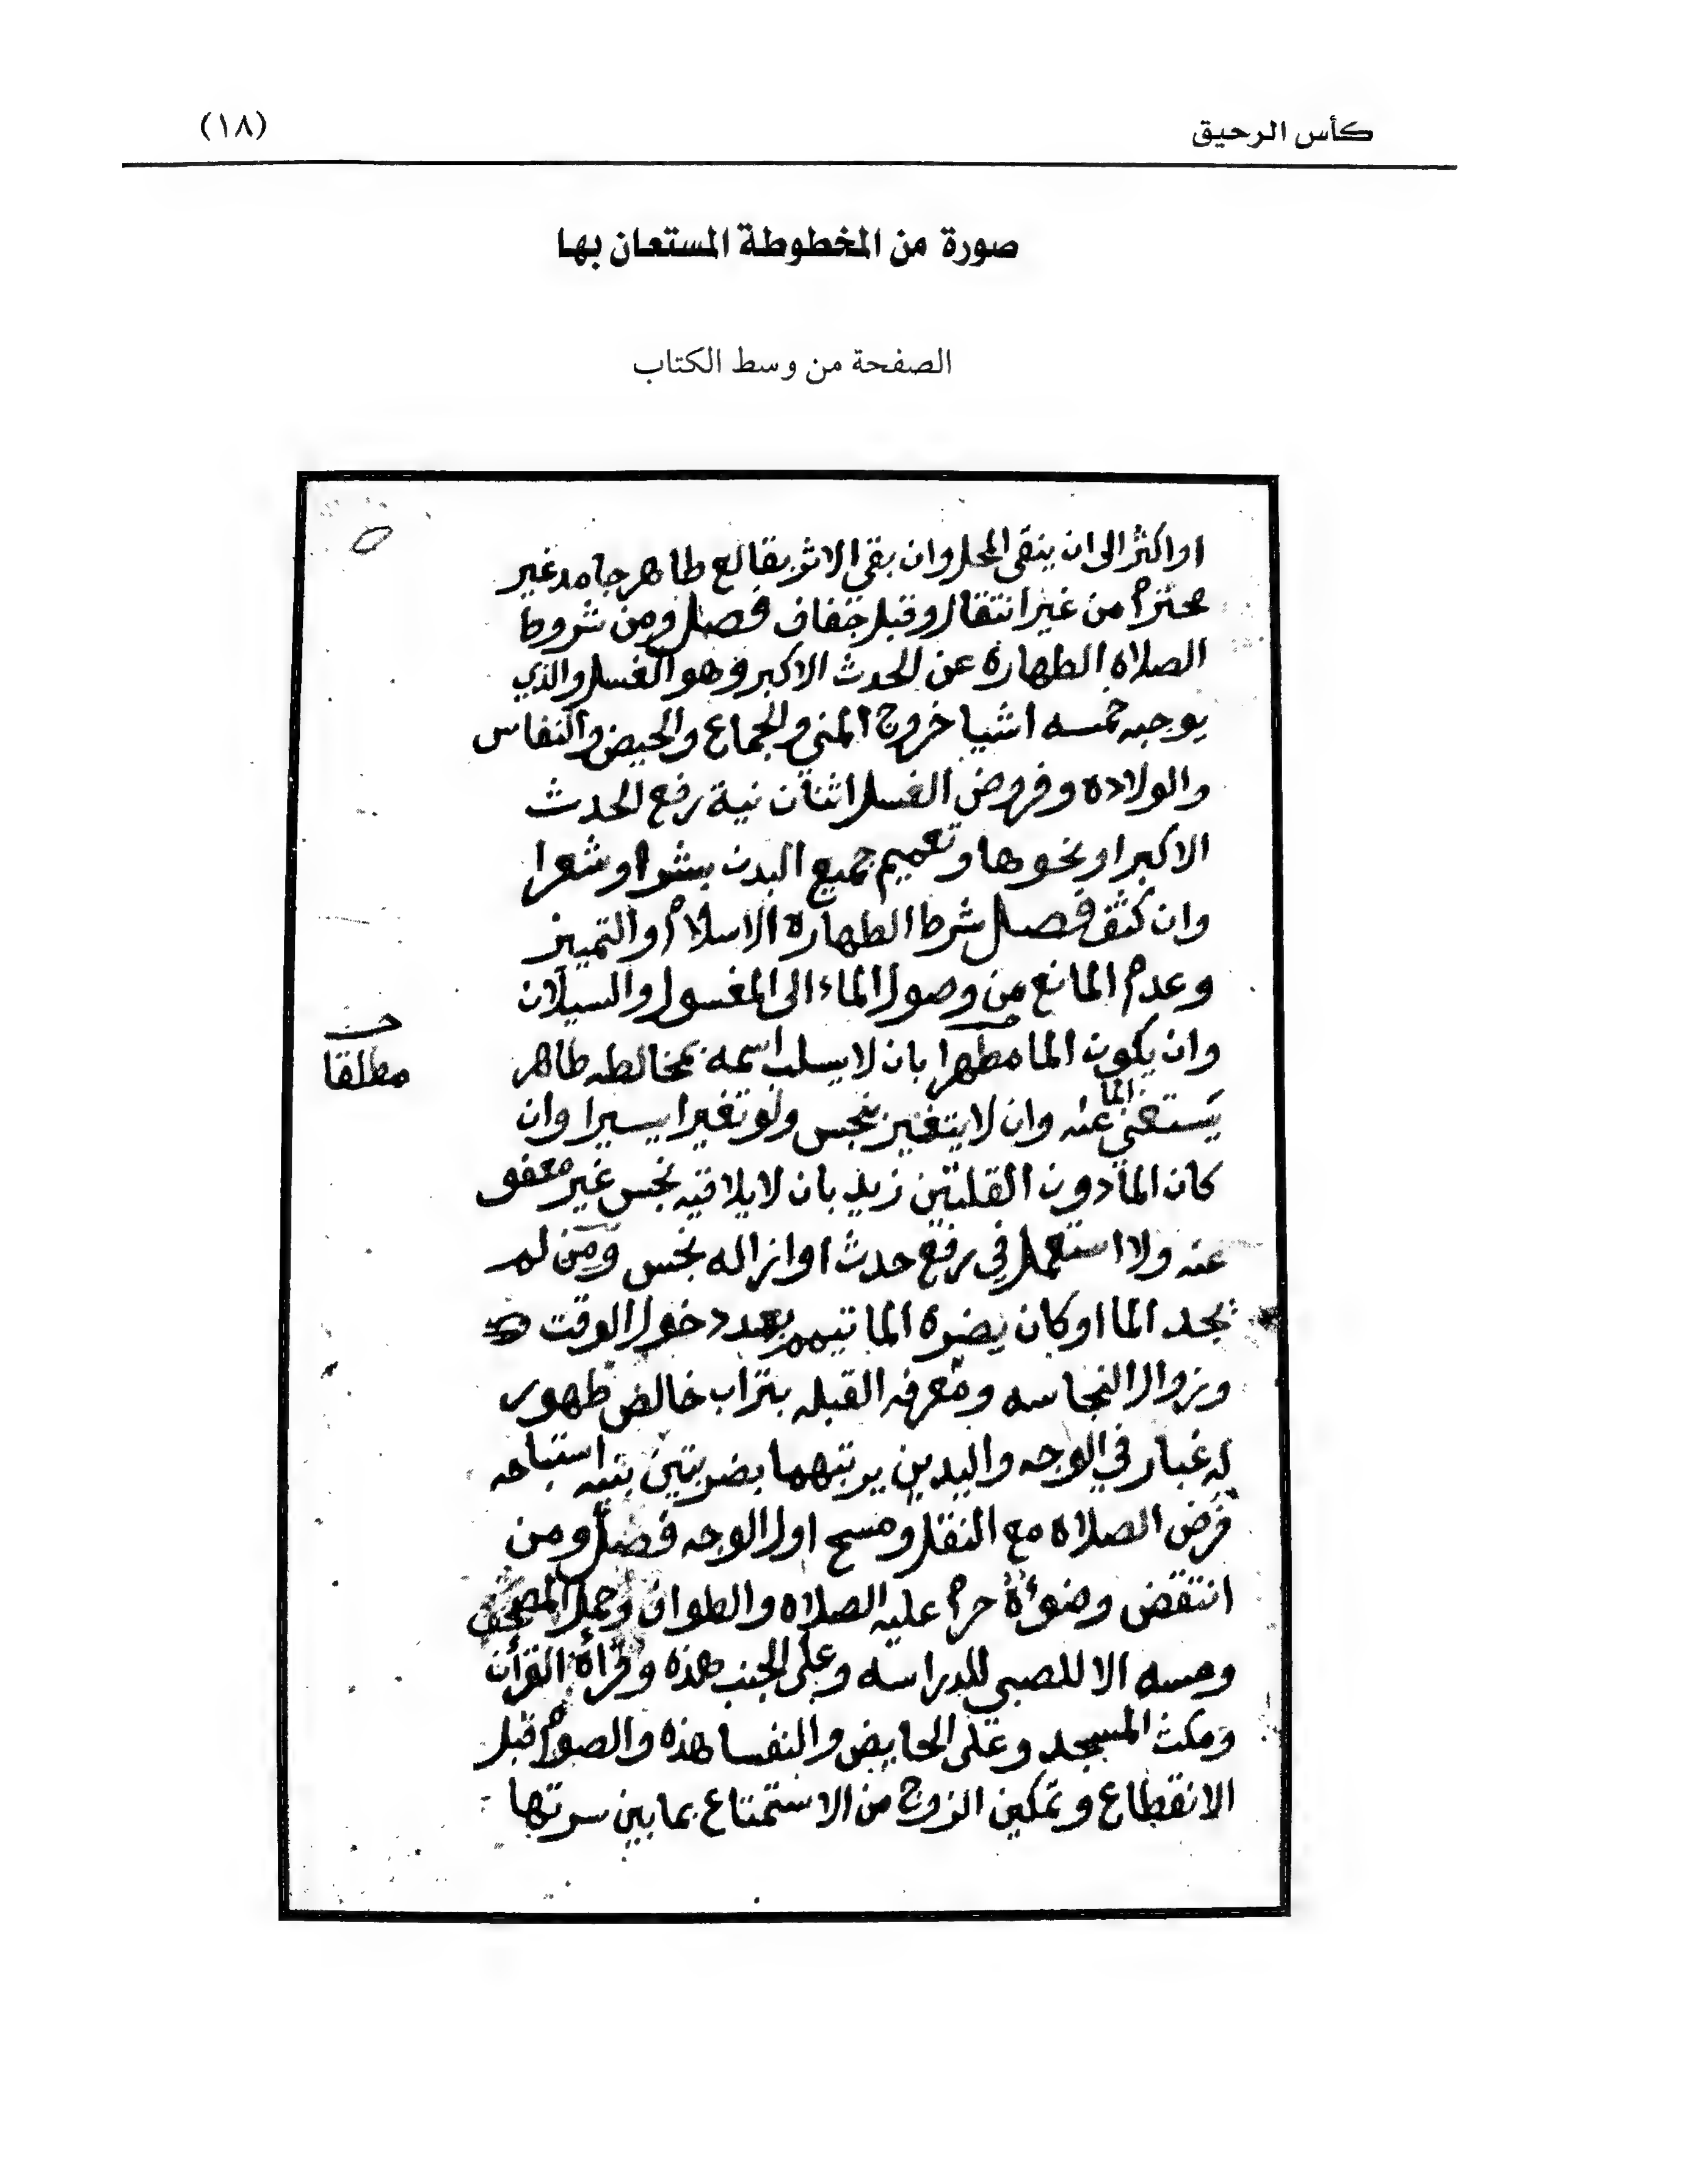 كأس الرحيق
(١٨)
صورة من المخطوطة المستعان بها
الصفحة من وسط الكتاب
او اكثر الى ان ينقى المحل وان بقي الاثر بقالع طاهر جامد غير
محترم من غير انتقال وقبل جفاف فصل ومن شروط
الصلاه الطهارة عن الحدث الاكبر وهو الغسل والذي
يوجبه خمسه اشيا خروج المني والجماع والحيض والنفاس
والولاده وفروض الغسل اثنان نية رفع الحدث
الاكبر او نحوها وتعميم جميع البدن بشرا وشعرا
وان كثف فصل شرط الطهارة الاسلام والتمييز
وعدم المانع من وصول الماء الى المغسول والسيلان
وان يكون الما مطهرا بان لا يسلب اسمه بمخالطه طاهر
يستغني الما عنه وان لا يتغير بنجس ولو تغيرا يسيرا وان
مطلقا
كان الما دون القلتين زيد بان لا يلاقيه نجس غير معفو
عنه ولا استعمل في رفع حدث او ازاله نجس ومن لم
يجد الما او كان يضره الما تيمم بعد دخول الوقت
وزوال النجاسه ومعرفه القبله بتراب خالص طهور
له غبار في الوجه واليدين يرتبهما بضربتين بنيه استباحه
فرض الصلاه مع النقل ومسح اول الوجه فصل ومن
انتقض وضوءه حرم عليه الصلاه والطواف وحمل المصحف
ومسه الا للصبي للدراسه وعلى الجنب هذه وقرأة القرأن
ومكث المسجد وعلى الحايض والنفسا هذه والصوم قبل
الانقطاع وتمكين الزوج من الاستمتاع بما بين سرتها